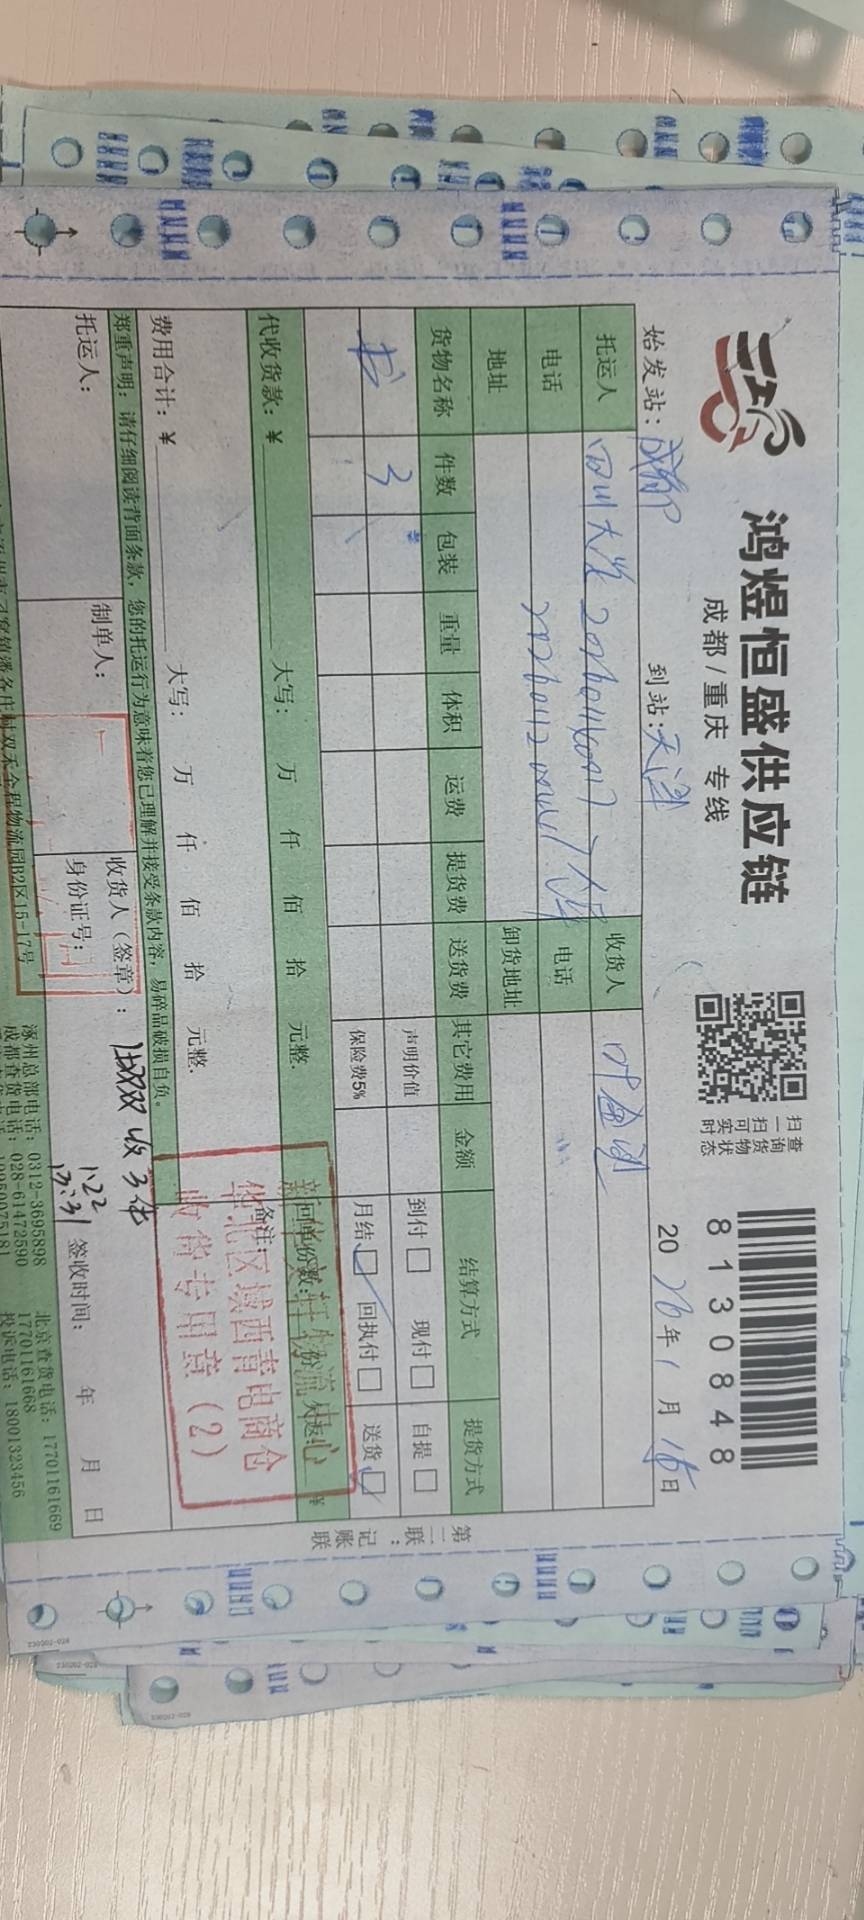 鸿煜恒盛供应链
成都/重庆 专线
扫一扫查询货物实时状态
8130848
始发站：成都 到站：天津 2026年1月15日
托运人 四川大学 收货人
电话 电话
地址 卸货地址
货物名称 件数 包装 重量 体积 运费 提货费 送货费 其它费用 金额 结算方式 提货方式
书 3 声明价值 到付□ 现付□ 自提□
保险费5% 月结☑ 回执付□ 送货☑
代收货款：￥ 大写： 万 仟 佰 拾 元整. 回单份数：
费用合计：￥ 大写： 万 仟 佰 拾 元整. 备注：
新华文轩物流中心
华北区域西青电商仓
收货专用章（2）
郑重声明：请仔细阅读背面条款，您的托运行为意味着您已理解并接受条款内容，易碎品破损自负。
托运人： 制单人： 收货人（签章）： 收3件
身份证号： 1.22 13:31 签收时间： 年 月 日
第二联：记账联
金程物流园B2区15-17号
涿州总部电话：0312-3695898 北京查货电话：17701161669
成都查货电话：028-61472590 17701161668
投诉电话：18001323456